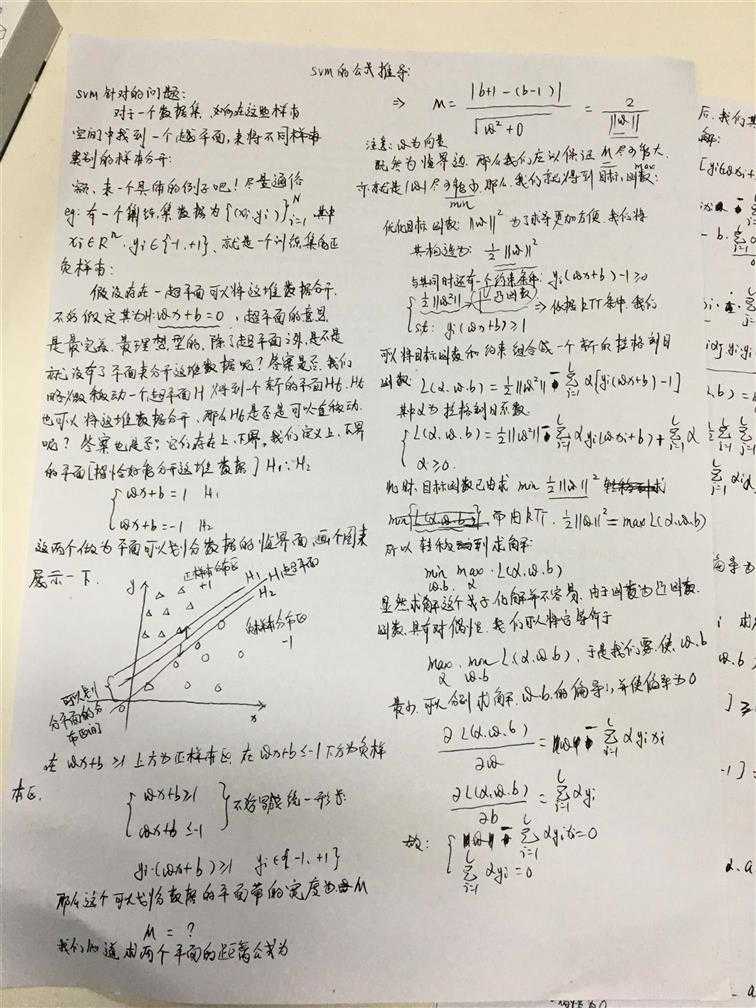 SVM的公式推导:
SVM针对的问题:
对于一个数据集,如何在这些样本
空间中找到一个超平面,来将不同样本
类别的样本分开:
额,来一个具体的例子吧!尽量通俗
eg: 有一个训练集数据为{(xi,yi)}ᴺᵢ₌₁ 其中
xi∈Rⁿ, yi∈{-1,+1}, 就是一个训练集的正
负样本:
假设存在一超平面可以将这堆数据分开,
不妨假定其为H: ωx+b=0, 超平面的意思
是最完美、最理想型的,除了超平面之外,是不是
就没有了平面来分开这堆数据呢?答案是否,我们
略微移动一个超平面H,得到一个新的平面Ht, Ht
也可以将这堆数据分开,那么Ht是否是可以一直移动
呢?答案也是否;它们存在上、下界,我们定义上、下界
的平面[恰好能分开这堆数据] H1、H2
{ ωx+b=1 H1
ωx+b=-1 H2
这两个做为平面可以划分数据的临界面,画个图来
展示一下.
y
正样本分布区
+1
H1 H超平面
H2
负样本分布区
-1
可以划
分平面的分
布区间
0
x
在 ωx+b≥1 上方为正样本区, 在 ωx+b≤-1 下方为负样
本区.
{ ωx+b≥1
ωx+b≤-1 } 不妨写成统一形式:
yi·(ωx+b)≥1 yi∈{-1,+1}
那么这个可以划分数据的平面带的宽度为 M
M = ?
我们知道求两个平面的距离公式为
⇒ M = |b+1-(b-1)| / √(ω²+0) = 2 / ||ω||
注意: ω为向量
既然为临界边,那么我们应以保证 M 尽可能大,
max
亦就是|ω|尽可能小,那么,我们就得到目标函数:
min
优化目标函数: ||ω||² 为了求导更加方便,我们将
其构造为: ½||ω||²
与其同时还有一个约束条件: yi(ωx+b)-1≥0
{ ½||ω²|| → 凸函数
st: yi(ωx+b)≥1 ⇒ 依据KTT条件,我们
可以将目标函数和约束组合成一个新的拉格朗日
函数: L(α.ω.b) = ½||ω²|| - Σᴸᵢ₌₁ α[yi(ωx+b)-1]
其中α为拉格朗日系数.
{ L(α.ω.b) = ½||ω²|| - Σᴸᵢ₌₁ αyi(ωxi+b) + Σᴸᵢ₌₁ α
α≥0.
此时,目标函数已由求 min ½||ω||²
min[L(α.ω.b)] 而由KTT. ½||ω||² = max L(α,ω,b)
所以转移到求解:
min max L(α.ω.b)
ω.b α
显然求解这个式子化解并不容易,由于函数为凸函数,
函数具有对偶性,我们可以将它等价于
max min L(α.ω.b), 于是我们要使ω.b
α ω.b
最小,可以分别求解ω.b.的偏导,并使偏导为0
∂L(α.ω.b) / ∂ω = ||ω|| - Σᴸᵢ₌₁ αyixi
∂L(α.ω.b) / ∂b = Σᴸᵢ₌₁ αyi
故: { ||ω|| - Σᴸᵢ₌₁ αyixi=0
Σᴸᵢ₌₁ αyi=0